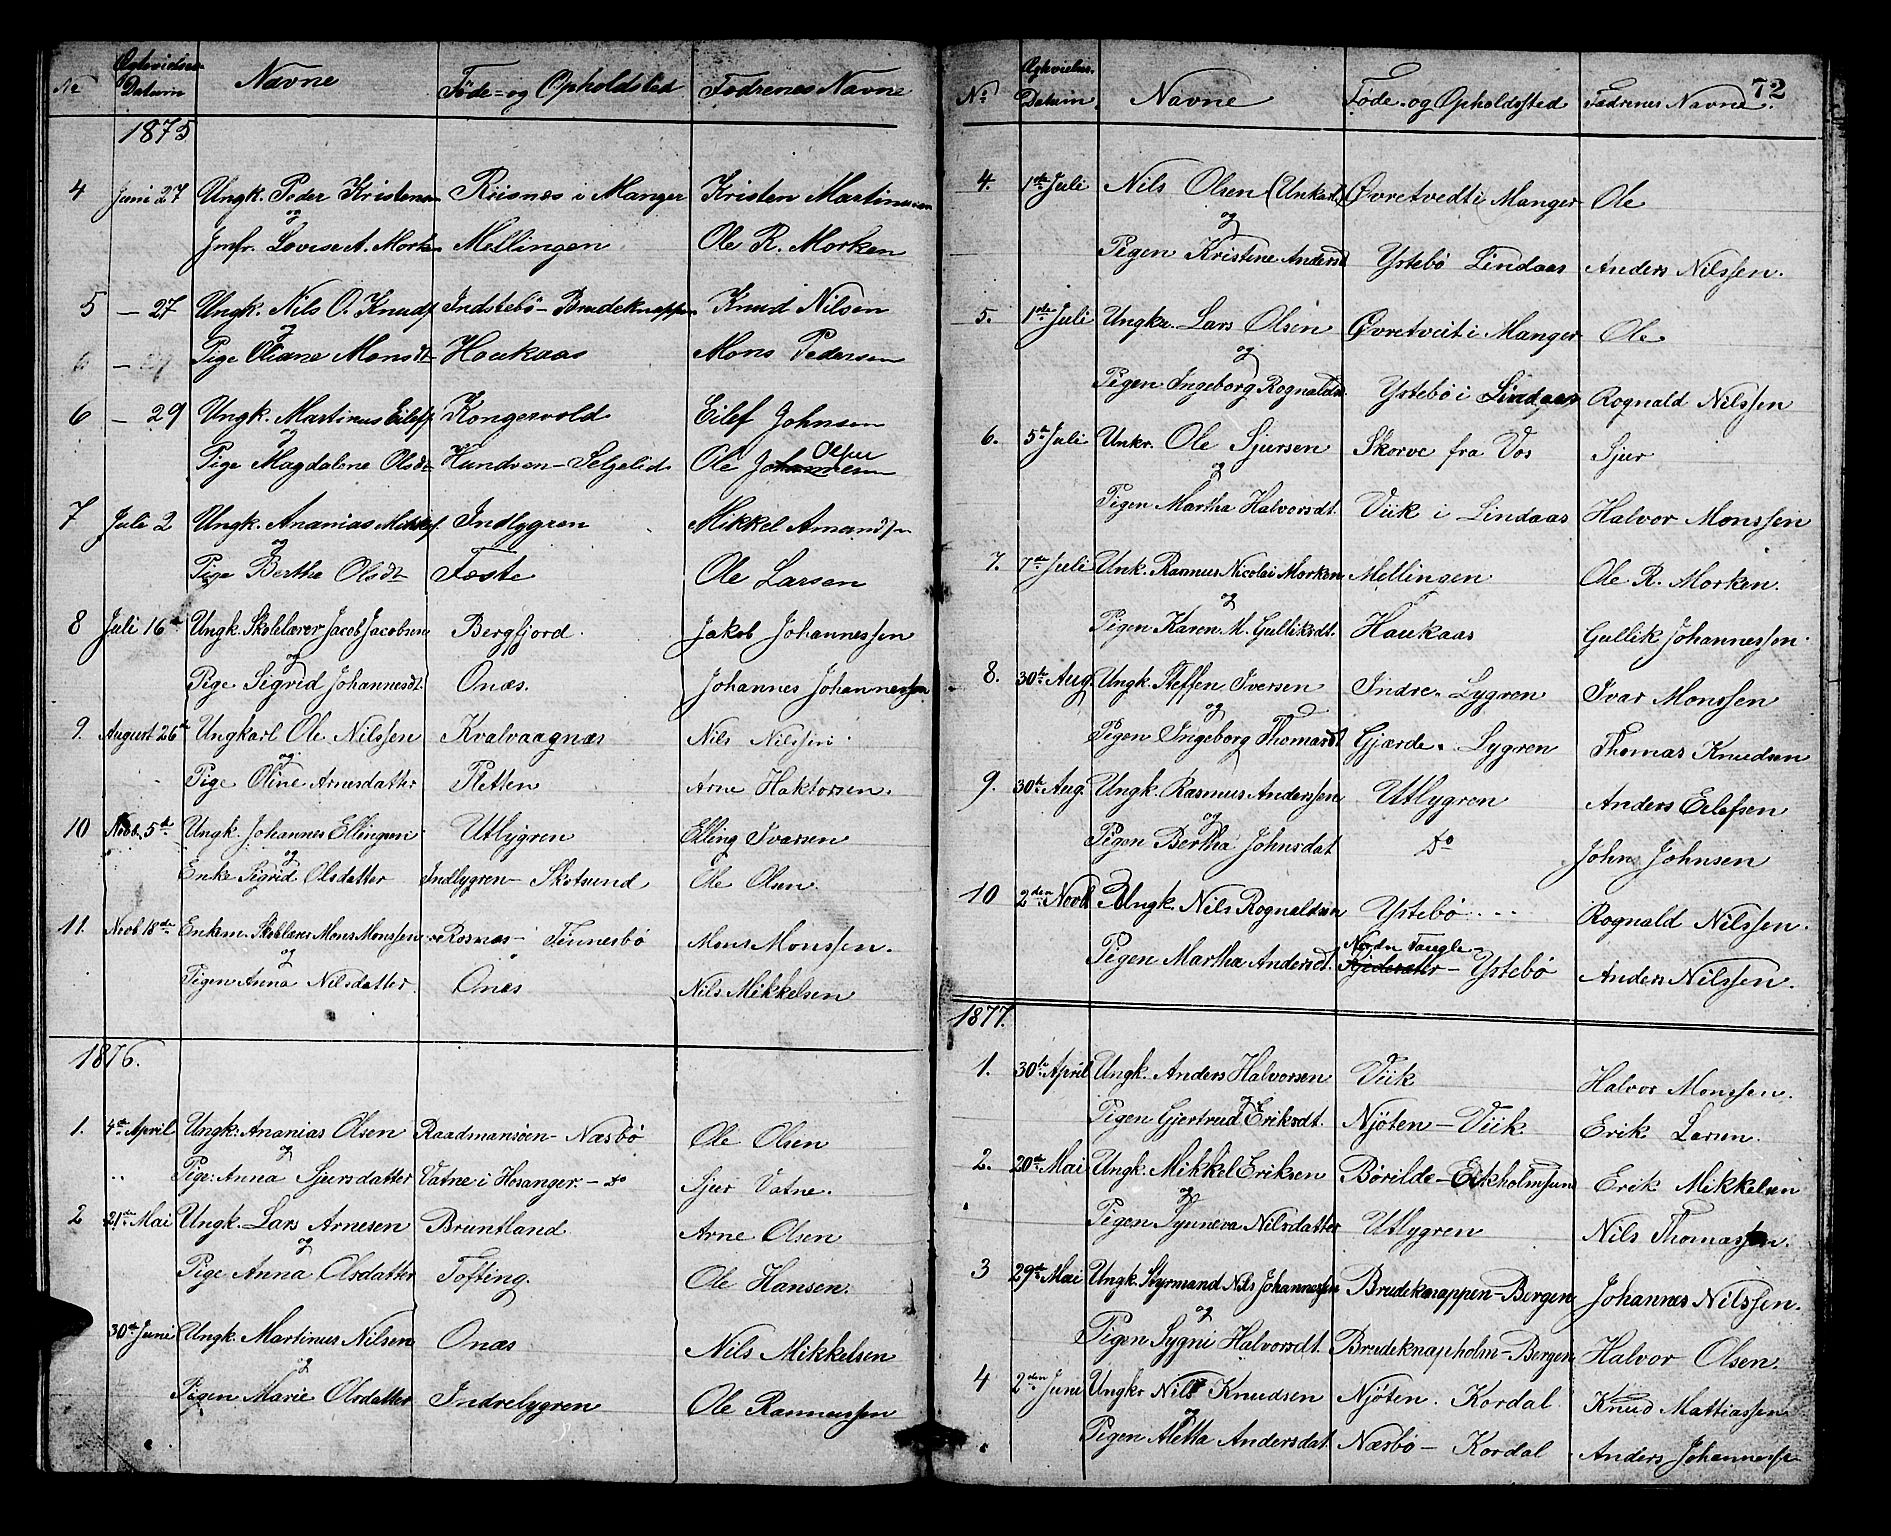 No Ægtevielses Datum Navne Føde- og Opholdsted Fædrenes Navne
1875
4 Juni 27 Ungk. Peder Kristens Riisnæs i Manger Kristen Martinussen
og
Jmfr. Lovise A. Morken Mellingen Ole R. Morken
5 — 27 Ungk. Nils O. Knuds Indstebö - Brudeknappen Knud Nilsen
og
Pige Oliane Monsdt Haukaas Mons Pedersen
6 — 29 Ungk. Martinus Eilefs Kongsvold Eilef Johnsen
og
Pige Magdalene Olsdt Hundven - Selgelid Ole Johannesen
7 Juli 2 Ungk. Ananias Indlygren Mikkel
og
Pige Berthe Olsdt Fæste Ole Larsen
8 Juli 16de Ungk. Skolelærer Jacob Jacobsen Bergfjord. Jakob Johannessen
og
Pige Sigrid Johannesdt. Onæs. Johannes Johannessen
9. August 26de Ungkarl Ole Nilssen Kvalvaagnæs Nils Nilssen
og
Pige Oline Arnesdatter Pletten Arne Haktorsen.
10 Novb. 5te Ungk. Johannes Ellingsen Utlygren Elling Ivarsen
og
Enke Sigrid Olsdatter Indlygren - Skotsund Ole Olsen.
11. Novb. 18de Enkem. Skolelærer Mons Monssen Rosnæs - Finnesbö Mons Monssen.
og
Pigen Anna Nilsdatter. Onæs Nils Mikkelsen
1876.
1. 4de April Ungk. Ananias Olsen Raadmansöen - Næsbö Ole Olsen
og
Pige: Anna Sjursdatter Vatne i Hosanger. - do Sjur Vatne.
2 21de Mai Ungk. Lars Arnesen Bruntland Arne Olsen
og
Pige Anna Olsdatter Tofting. Ole Hansen.
30te Juni Ungk. Martinus Nilsen Onæs Nils Mikkelsen
og
Pigen Marie Olsdatter Indrelygren Ole Rasmussen
72
No. Ægtevielses Datum Navne Føde- og Opholdssted Fædrenes Navne.
4. 1ste Juli Nils Olsen (Unkarl) Øvretvedt i Manger Ole
og
Pigen Kristine Andersd Ystebö Lindaas Anders Nilssen.
5. 1ste Juli Ungkr. Lars Olsen Øvretveit i Manger Ole
og
Pigen Ingeborg Rognaldsd. Ystebö i Lindaas Rognald Nilssen
6. 5te Juli Unkr. Ole Sjursen Skorve fra Vos Sjur
og
Pigen Martha Halvorsdt. Viik i Lindaas Halvor Monssen
7. 7de Juli Unk. Rasmus Nicolai Morken Mellingen Ole R. Morken.
og
Pigen Karen M. Gulliksdt. Haukaas Gullik Johannessen.
8. 30te Aug. Ungk. Steffen Iversen Indre- Lygren Ivar Monssen
og
Pigen Ingeborg Thomasdt Gjærde- Lygren Thomas Knudsen
9. 30te Aug. Ungk. Rasmus Anderssen Utlygren Anders Eilefsen
og
Pigen Bertha Johnsdat do John Johnsen
10 2den Novb Ungk. Nils Rognaldsen Ystebö Rognald Nilssen.
Pigen Martha Andersdt. Nordn Tangle - Ystebö Anders Nilssen.
1877.
1. 30te April Ungk. Anders Halvorsen Viik Halvor Monssen.
og
Pigen Gjertrud Eriksdt. Njöten - Viik Erik Larsen.
2. 20de Mai Ungk. Mikkel Eriksen Börilde - Eikholmsund Erik Mikkelsen
og
Pigen Synneva Nilsdatter Utlygren Nils Thomassen.
3 29de Mai Ungk. Styrmand Nils Johannessen Brudeknappen - Bergen Johannes Nilssen.
og
Pigen Sygni Halvorsdt. Brudeknapholm - Bergen Halvor Olsen
4 2den Juni Ungkr Nils Knudsen Njöten. Kordal Knud Mattiassen
og
Pigen Aletta Andersdat. Næsbö - Kordal Anders Johannessen